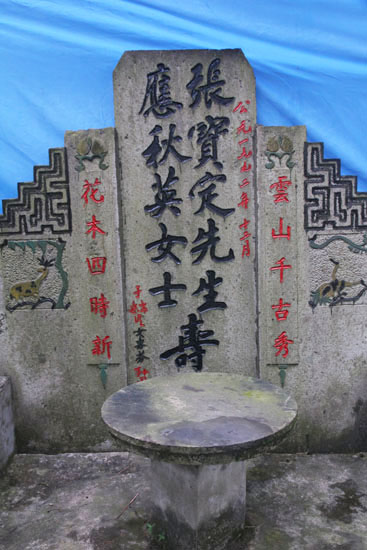 雲山千古秀
公元一九
二年十二月
張寶定先生
應秋英女士
壽
花木回時新